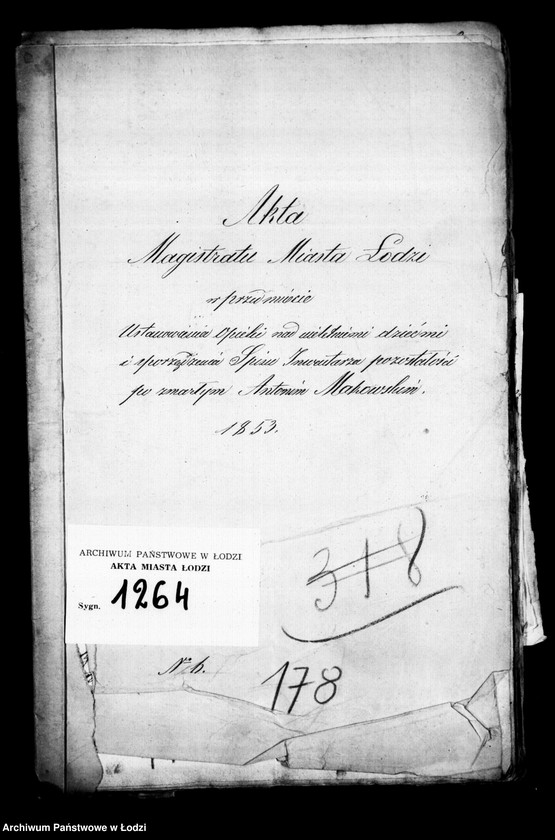 Akta
Magistratu Miasta Łodzi
w przedmiocie
Ustanowienia Opieki nad nieletniemi dziećmi
i sporządzenia Spisu Inwentarza pozostałości
po zmarłym Antonim Makowskim.
1853.
318
ARCHIWUM PAŃSTWOWE W ŁODZI
AKTA MIASTA ŁODZI
Sygn. 1264
178
Archiwum Państwowe w Łodzi